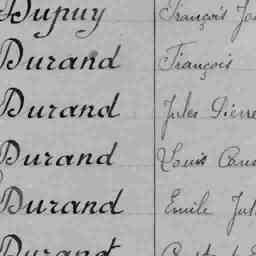 Dupuy François
Durand François
Durand Jules Pierre
Durand Louis
Durand Emile
Durand